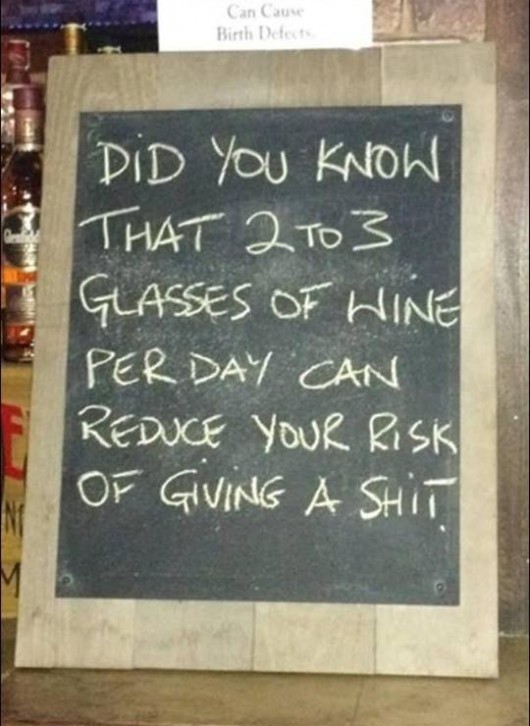 Can Cause
Birth Defects.
DiD YOU KNOW
THAT 2 TO 3
GLASSES OF WINE
PER DAY CAN
REDUCE YOUR RiSK
OF GIVING A SHiT.